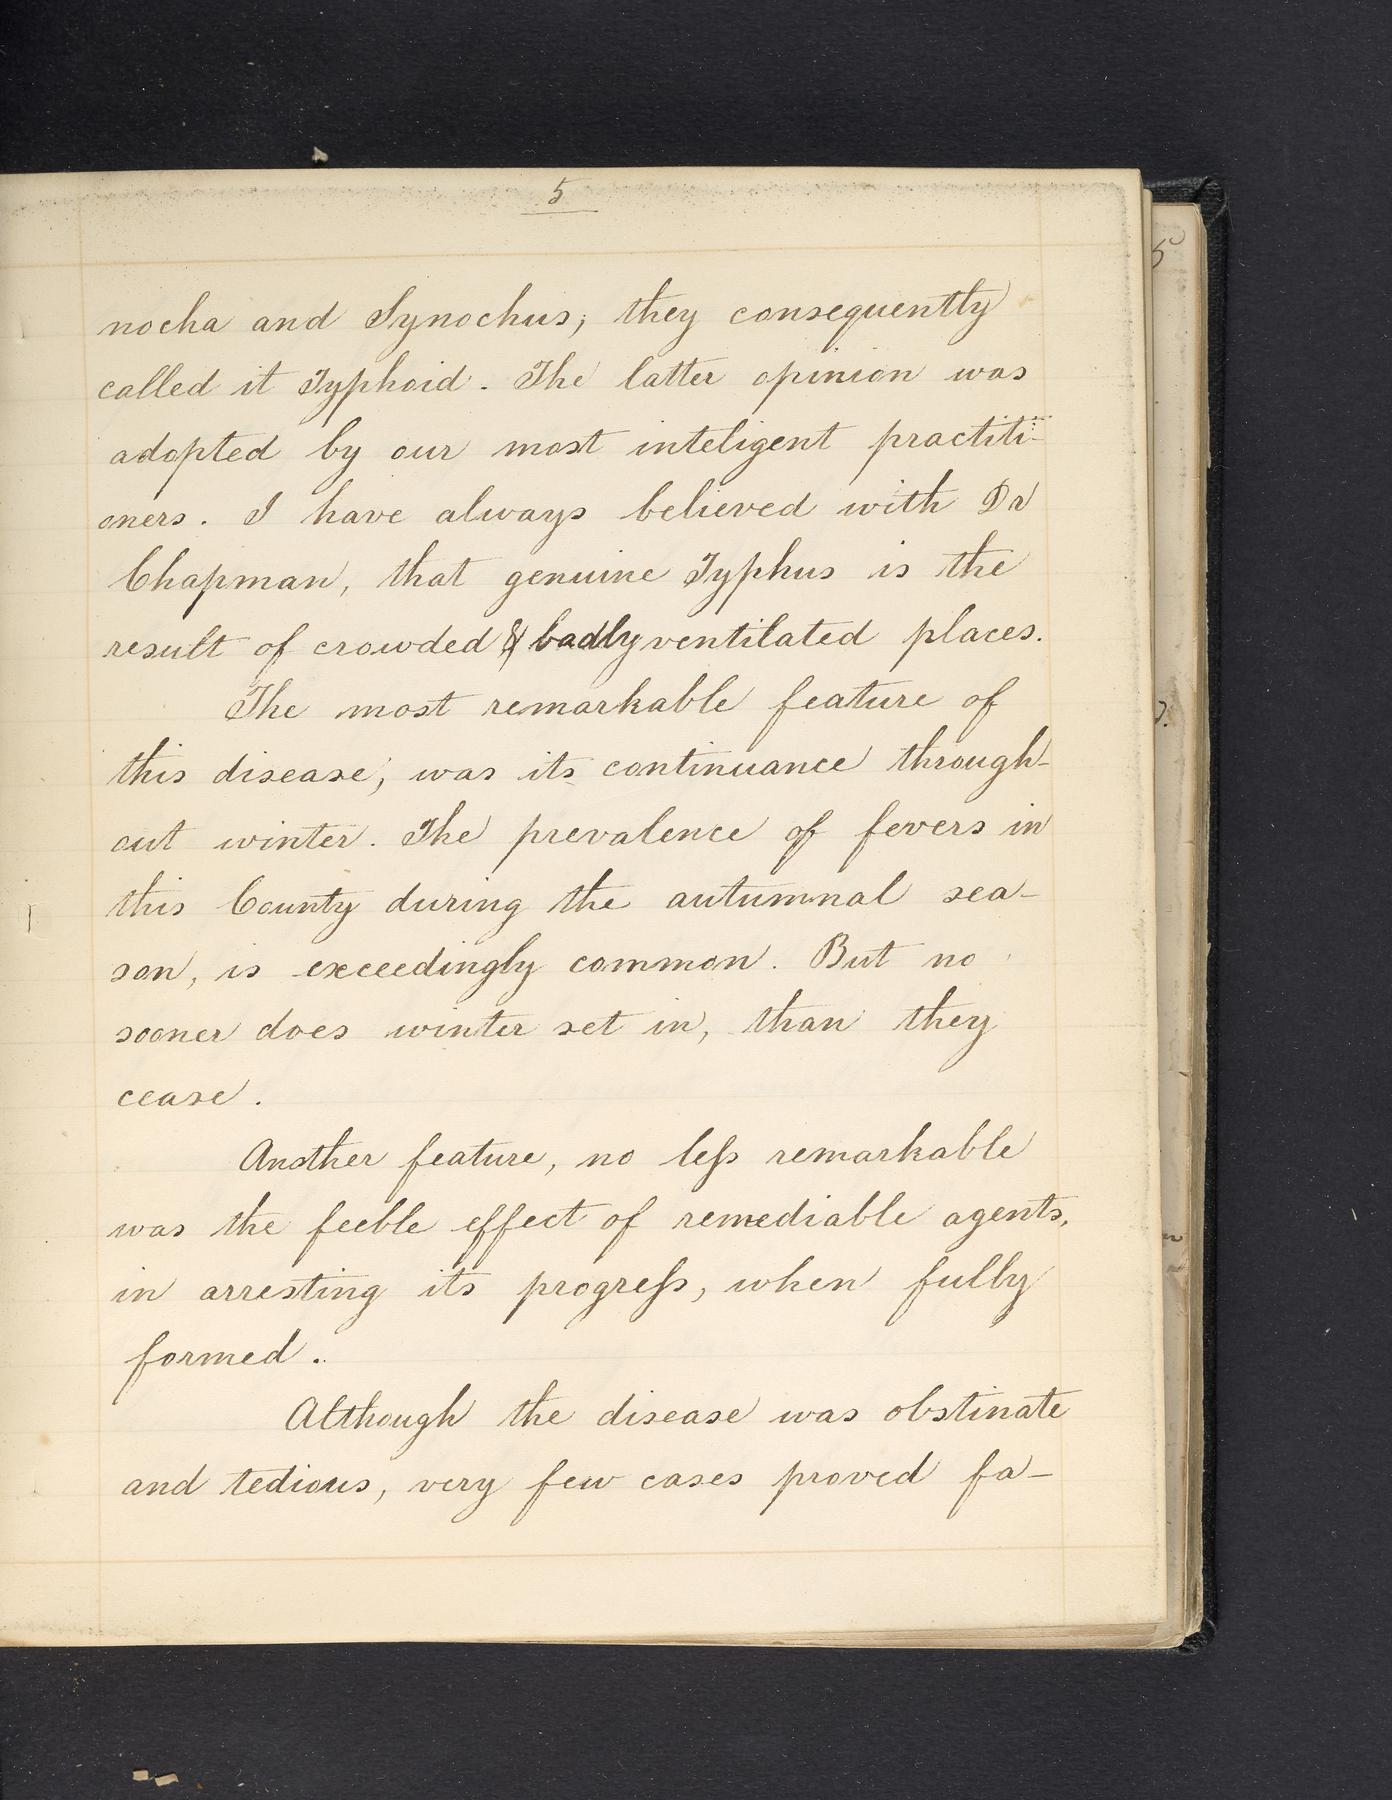 5
nocha and Synochus; they consequently
called it Typhoid. The latter opinion was
adopted by our most inteligent practiti-
oners. I have always believed with Dr
Chapman, that genuine Typhus is the
result of crowded & badly ventilated places.
The most remarkable feature of
this disease, was its continuance through-
out winter. The prevalence of fevers in
this County during the autumnal sea-
son, is exceedingly common. But no
sooner does winter set in, than they
cease.
Another feature, no leſs remarkable
was the feeble effect of remediable agents,
in arresting its progreſs, when fully
formed.
Although the disease was obstinate
and tedious, very few cases proved fa-
5